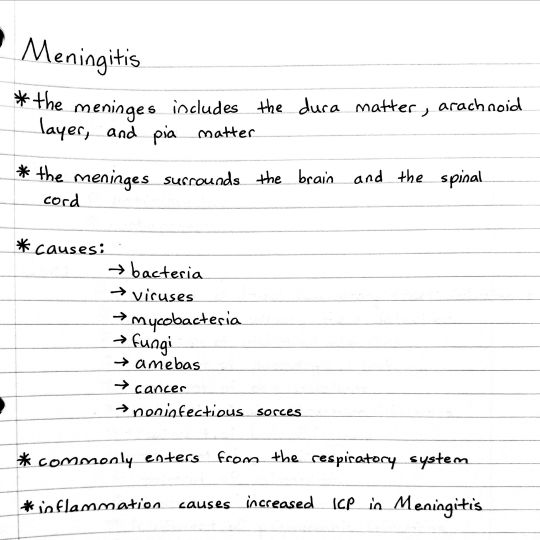 Meningitis
* the meninges includes the dura matter, arachnoid
layer, and pia matter
* the meninges surrounds the brain and the spinal
cord
* causes:
→ bacteria
→ viruses
→ mycobacteria
→ fungi
→ amebas
→ cancer
→ noninfectious sorces
* commonly enters from the respiratory system
* inflammation causes increased ICP in Meningitis